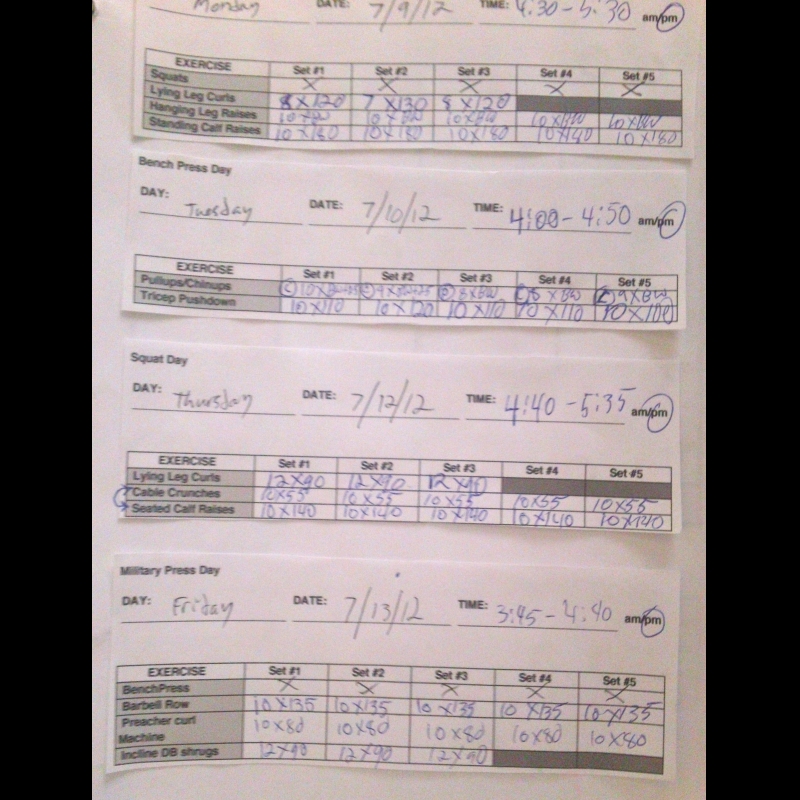 Monday DATE: 7/9/12 TIME: 4:30-5:30 am/pm
EXERCISE Set #1 Set #2 Set #3 Set #4 Set #5
Squats X X X X X
Lying Leg Curls 8X120 7X130 8X120
Hanging Leg Raises 10XBW 10XBW 10XBW 10XBW 10XBW
Standing Calf Raises 10X180 10X180 10X180 10X190 10X180
Bench Press Day
DAY: Tuesday DATE: 7/10/12 TIME: 4:00-4:50 am/pm
EXERCISE Set #1 Set #2 Set #3 Set #4 Set #5
Pullups/Chinups 8XBW 8XBW 9XBW
Tricep Pushdown 10X110 10X120 10X110 10X110 10X100
Squat Day
DAY: Thursday DATE: 7/12/12 TIME: 4:40-5:35 am/pm
EXERCISE Set #1 Set #2 Set #3 Set #4 Set #5
Lying Leg Curls 12X90 12X90 12X90
Cable Crunches 10X55 10X55 10X55 10X55 10X55
Seated Calf Raises 10X140 10X140 10X140 10X140 10X140
Military Press Day
DAY: Friday DATE: 7/13/12 TIME: 3:45-4:40 am/pm
EXERCISE Set #1 Set #2 Set #3 Set #4 Set #5
BenchPress X X X X X
Barbell Row 10X135 10X135 10X135 10X135 10X135
Preacher curl
Machine 10X80 10X80 10X80 10X80 10X80
Incline DB shrugs 12X90 12X90 12X90